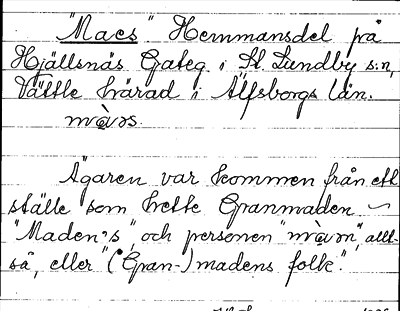 "Maes". Hemmansdel på
Hjällsnäs Gateg. i St. Lundby s:n,
Vättle härad i Älfsborgs län.
màǝs.
Ägaren var kommen från ett
ställe som hette Granmaden
"Maden's", och personen "màǝn", allt-
så, eller "(Gran-)madens folk".